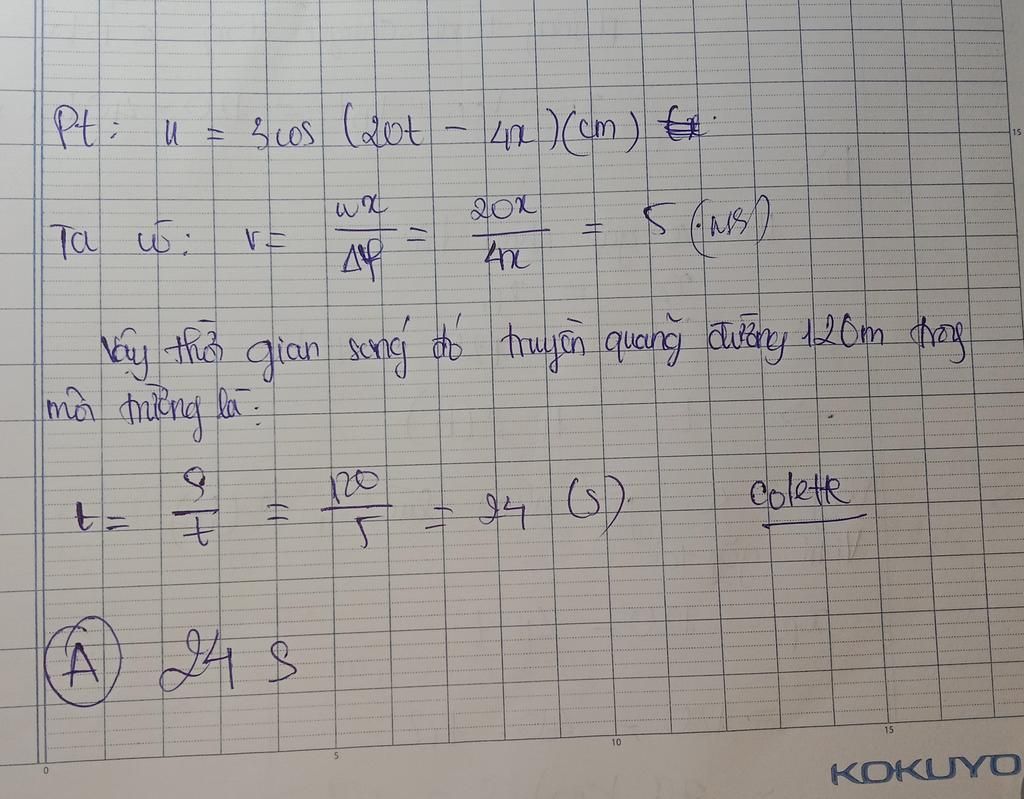 Pt: u = 3cos (20t - 4x)(cm)
Ta có: v = ωx/Δφ = 20x/4x = 5 (m/s)
Vậy thời gian sóng đó truyền quãng đường 120m trong
môi trường là:
t = s/t = 120/5 = 24 (s).
colette
A 24 s
0 5 10 15
15
KOKUYO